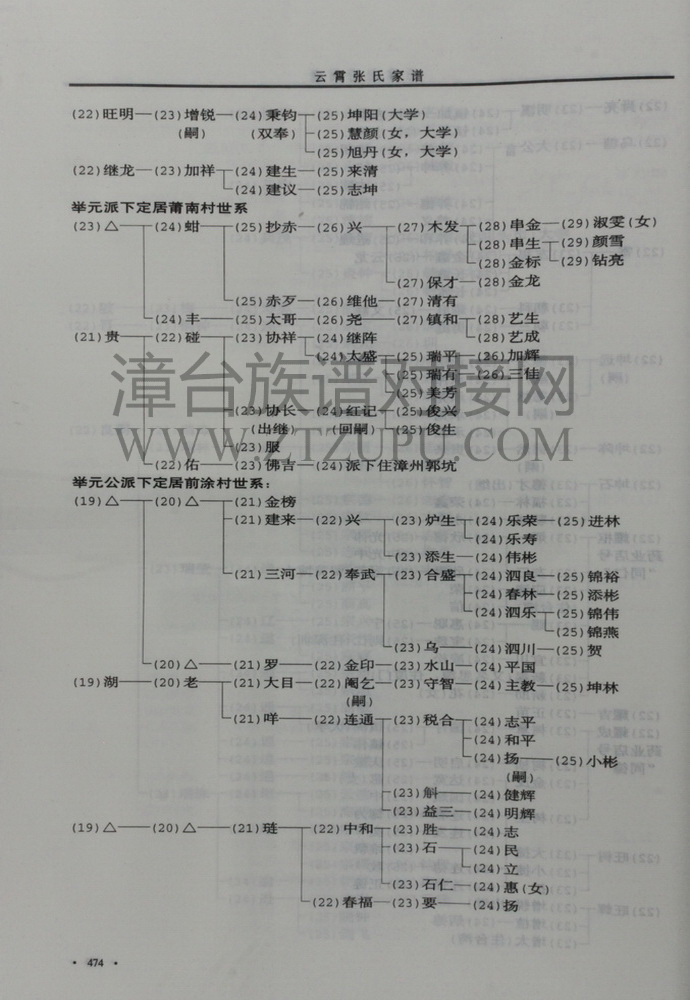 云霄张氏家谱
(22)旺明—(23)增锐—(24)秉钧—(25)坤阳(大学)
(嗣) (双奉) (25)慧颜(女，大学)
(25)旭丹(女，大学)
(22)继龙—(23)加祥—(24)建生—(25)来清
(24)建议—(25)志坤
举元派下定居莆南村世系
(23)△—(24)蚶—(25)抄赤—(26)兴—(27)木发—(28)串金—(29)淑雯(女)
(28)串生—(29)颜雪
(28)金标—(29)钻亮
(27)保才—(28)金龙
(25)赤歹—(26)维他—(27)清有
(24)丰—(25)太哥—(26)尧—(27)镇和—(28)艺生
(28)艺成
(21)贵—(22)碰—(23)协祥—(24)继阵
(24)太盛—(25)瑞平—(26)加辉
(25)瑞有—(26)三佳
(25)美芳
(23)协长—(24)红记—(25)俊兴
(出继) (回嗣) (25)俊生
(23)服
(22)佑—(23)佛吉—(24)派下住漳州郭坑
举元公派下定居前涂村世系：
(19)△—(20)△—(21)金榜
(21)建来—(22)兴—(23)炉生—(24)乐荣—(25)进林
(24)乐寿
(23)添生—(24)伟彬
(21)三河—(22)奉武—(23)合盛—(24)泗良—(25)锦裕
(24)春林—(25)添彬
(24)泗乐—(25)锦伟
(25)锦燕
(23)乌—(24)泗川—(25)贺
(20)△—(21)罗—(22)金印—(23)水山—(24)平国
(19)湖—(20)老—(21)大目—(22)阉乞—(23)守智—(24)主教—(25)坤林
(嗣)
(21)咩—(22)连通—(23)税合—(24)志平
(24)和平
(24)扬—(25)小彬
(嗣)
(23)斛—(24)健辉
(23)益三—(24)明辉
(19)△—(20)△—(21)琏—(22)中和—(23)胜—(24)志
(23)石—(24)民
(24)立
(23)石仁—(24)惠(女)
(22)春福—(23)要—(24)扬
· 474 ·
漳台族谱对接网
WWW.ZTZUPU.COM